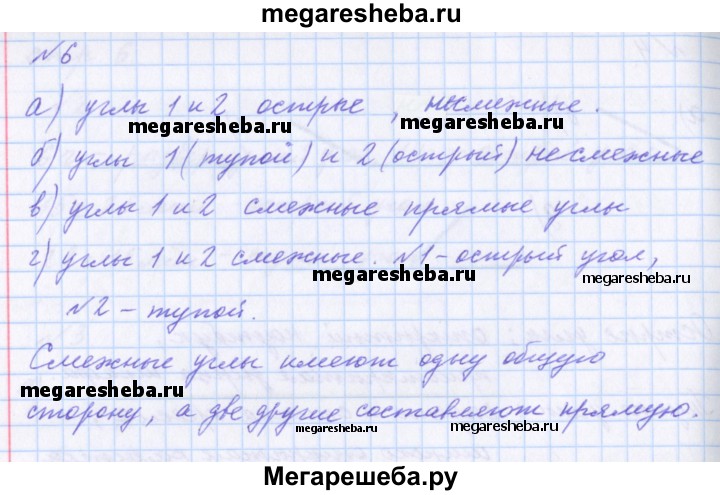 megaresheba.ru
№6
а) углы 1 и 2 острые, несмежные.
megaresheba.ru megaresheba.ru
б) углы 1 (тупой) и 2 (острый) несмежные
в) углы 1 и 2 смежные прямые углы
г) углы 1 и 2 смежные. №1 - острый угол,
megaresheba.ru megaresheba.ru
№2 - тупой.
Смежные углы имеют одну общую
megaresheba.ru
сторону, а две другие составляют прямую.
megaresheba.ru megaresheba.ru
Мегарешеба.ру